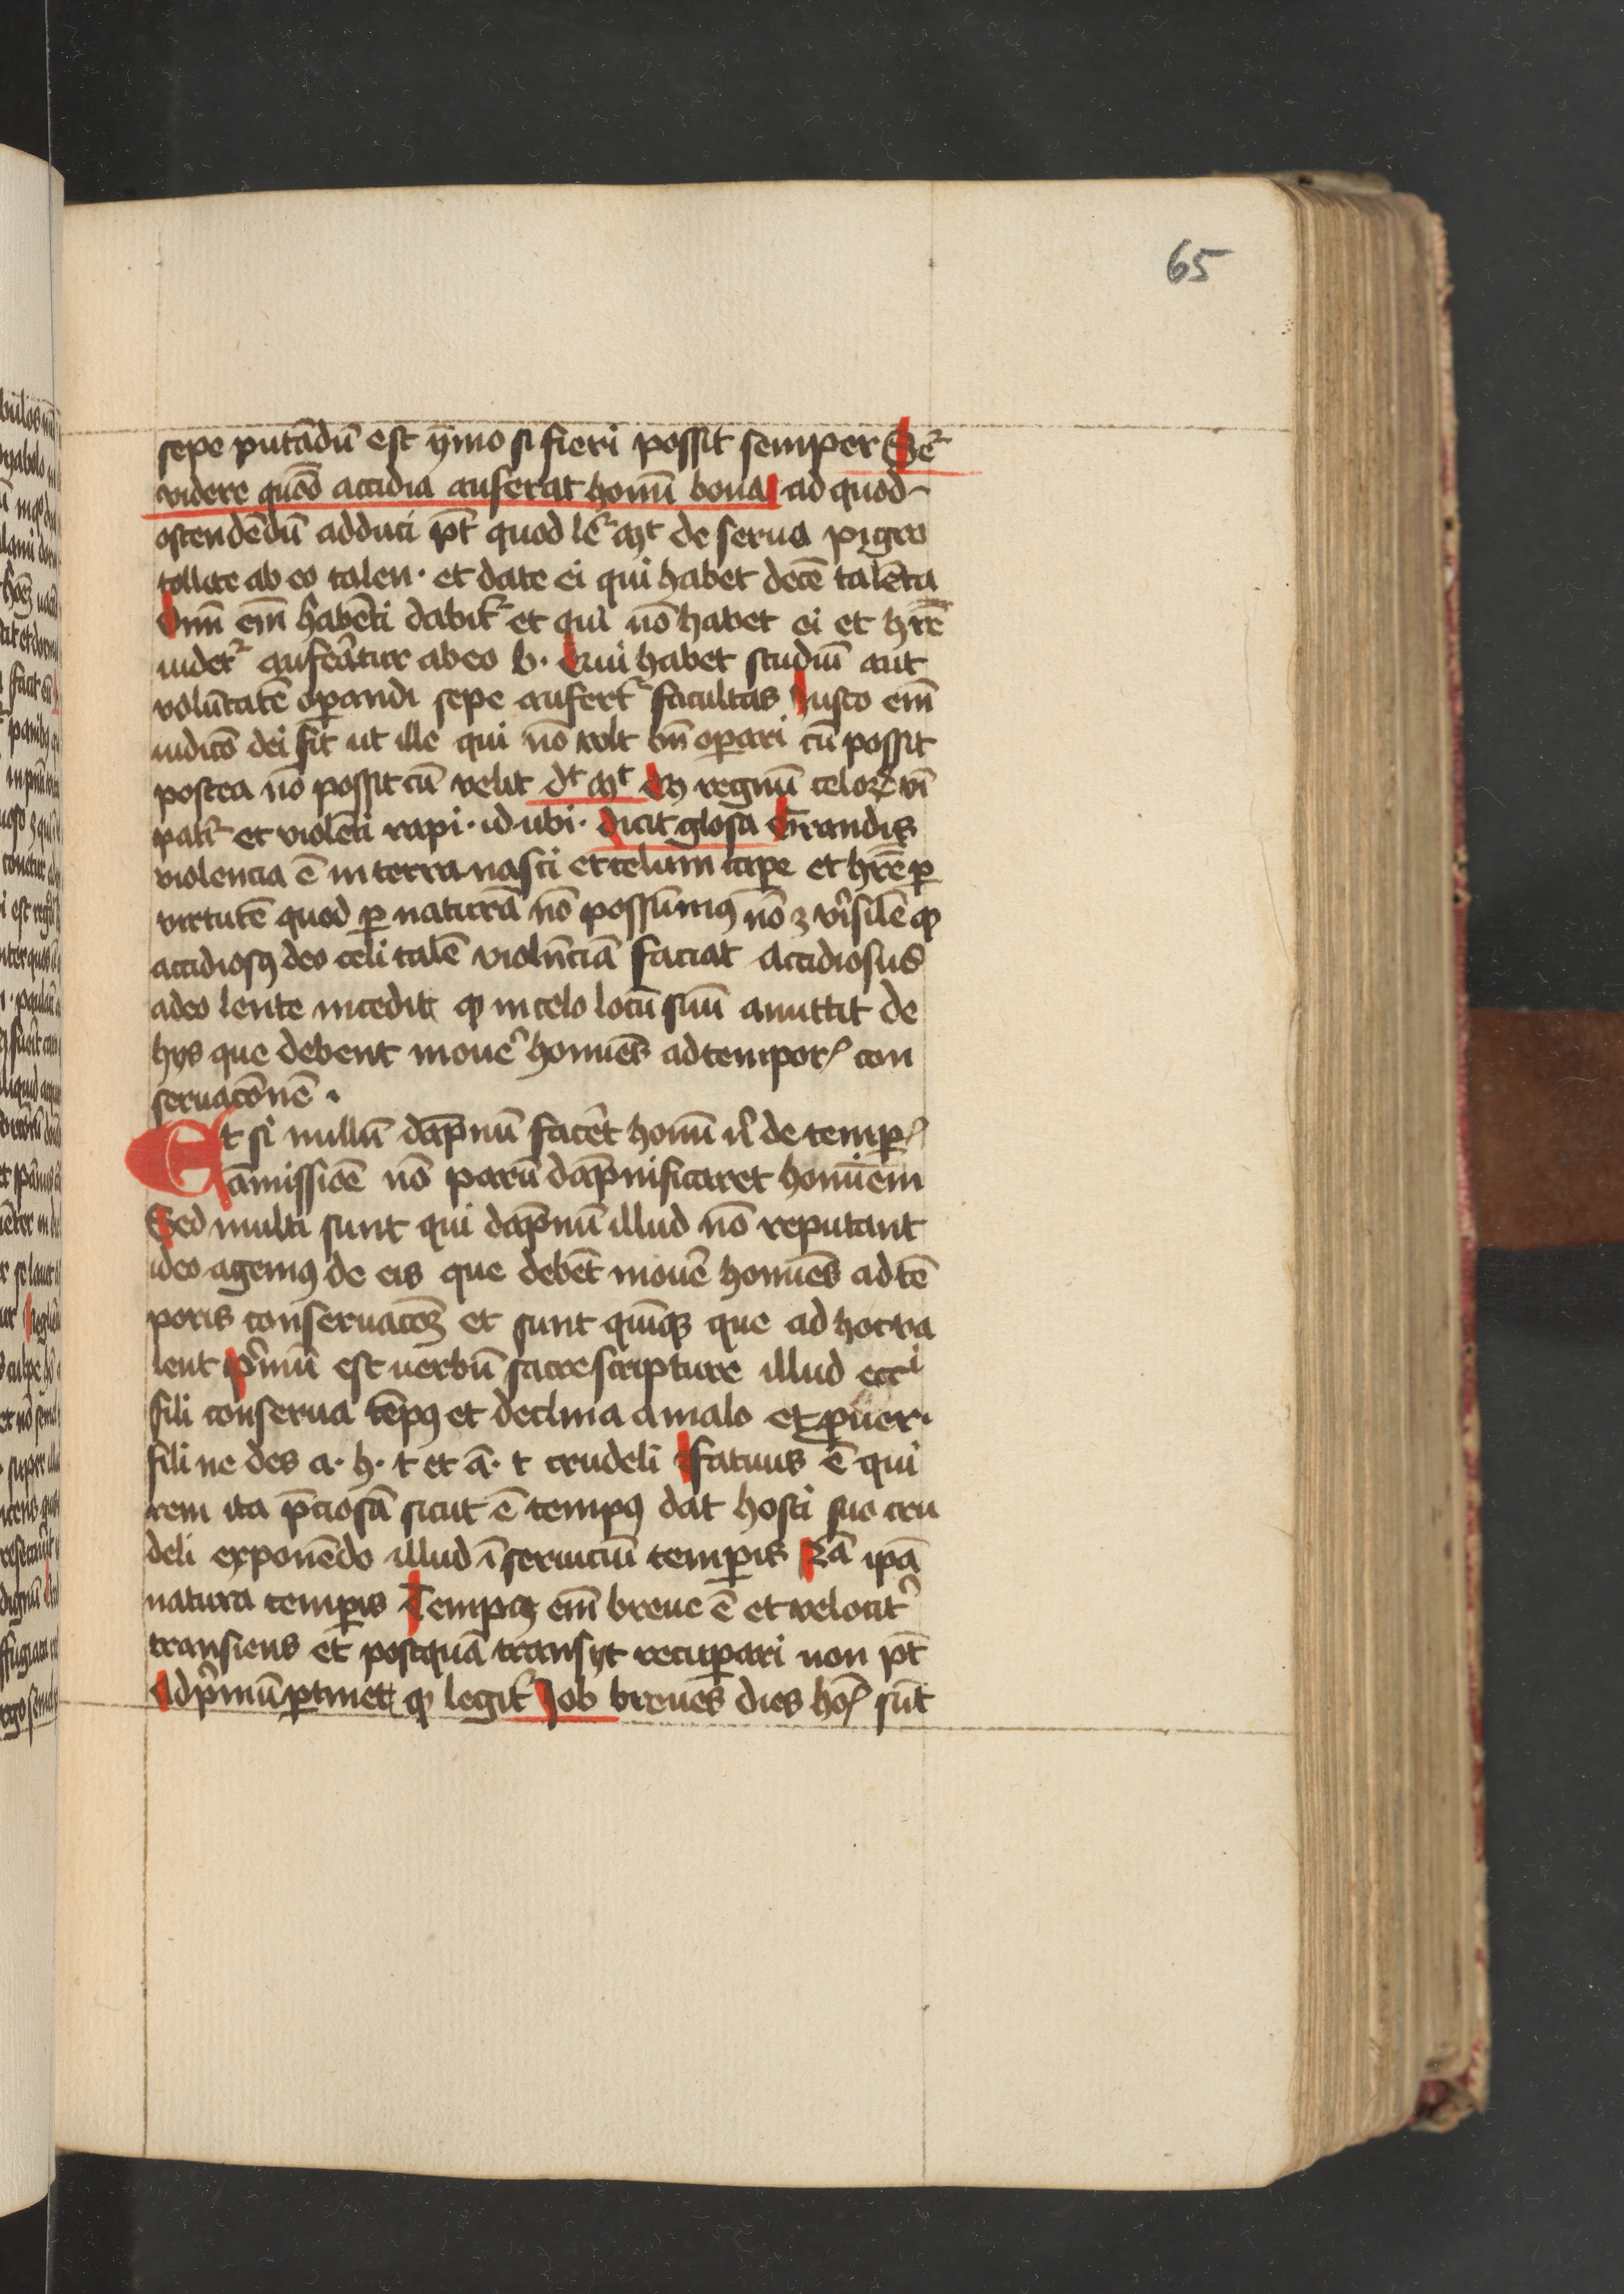 65
sepe putādū est ymo si fieri possit semper Seꝛ̄
videre quō accidia auferat homī bona ad quod
ostendēdū adduci pt̄ quod lēr mt de seruo pigro
tollite ab eo talen. et date ei qui habet decē talēta
Omī em̄ habēti dabitʳ et qui nō habet ei et hr̄e
uidetʳ auferatur ab eo b. Qui habet studiū aut
volūtatē oꝑandi sepe aufertʳ facultas Iusto em̄
iudicō dei fit ut ille qui nō volt bn̄ oꝑari cū possit
postea nō possit cū velit dt mt Qꝫ regnū celoꝝ vī
patʳ et violēti rapi. id. ubi. dicit glosa Grandis
violencia ē in terra nasci et celum caꝑe et hr̄e ꝑ
virtutē quod ꝑ naturā nō possumꝰ nō ꝫ vˢisilē ꝙ
accidiosꝰ deo celi talē violn̄ciā faciat Accidiosus
adeo lente incedit ꝙ in celo locū suū amittit de
hys que debent mouēˢ homīes ad tempor̄ con
seruacōnē .
Et si nullū dāpnū facēt homī nˢ de temꝑ̄
amissiōe nō parū dāpnificaret homīem
Sed multi sunt qui dāpnū illud nō reputant
ideo agemꝰ de eis que debēt mouēˢ homīes ad tē
poris conseruacōꝫ et sunt quīqꝫ que ad hoc va
lent pˢmū est uerbū sacre scripture illud eccⁱ
fili conserua tēpꝰ et declina a malo et ꝓuer.
fili ne des a. h. t et ā. t crudeli Fatuus ē qui
rem ita p̄ciosā sicut ē tempꝰ dat hosti suo cru
deli exponēdo illud ī seruiciū temꝑis Rā ip̄a
natura temꝑis Tempꝰ em̄ breue ē et velocitˢ
transiens et postquā transyt recuꝑari non pt̄
Ad pˢmū ꝑtinet ꝙ legitʳ Job breues dies ho͞is sūt